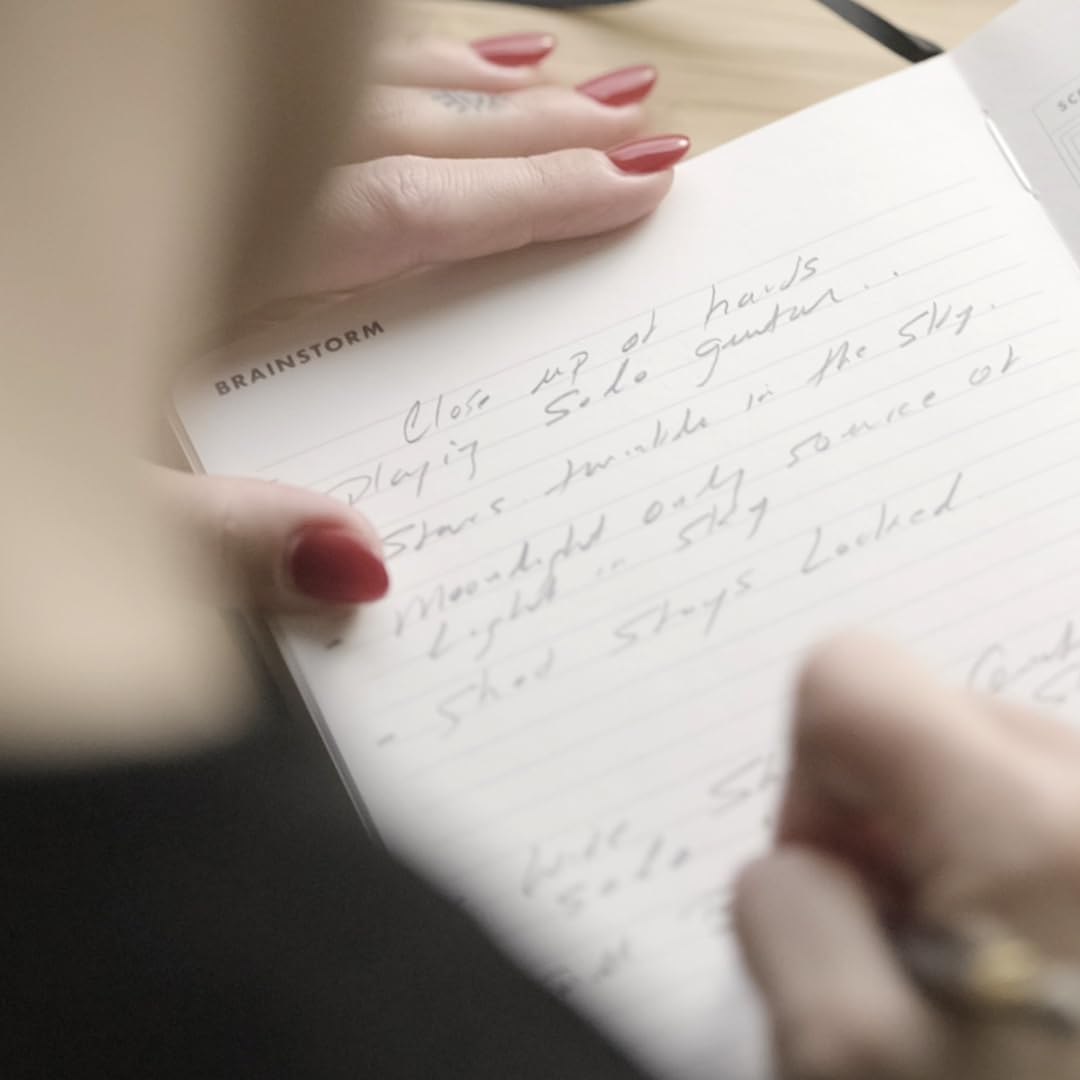 BRAINSTORM
SC
Close up of hands
Playing Solo guitar..
Stars twinkle in the Sky.
- Moonlight only source of
Light in Sky
- Shot Stays Locked
Wide Sh
Solo